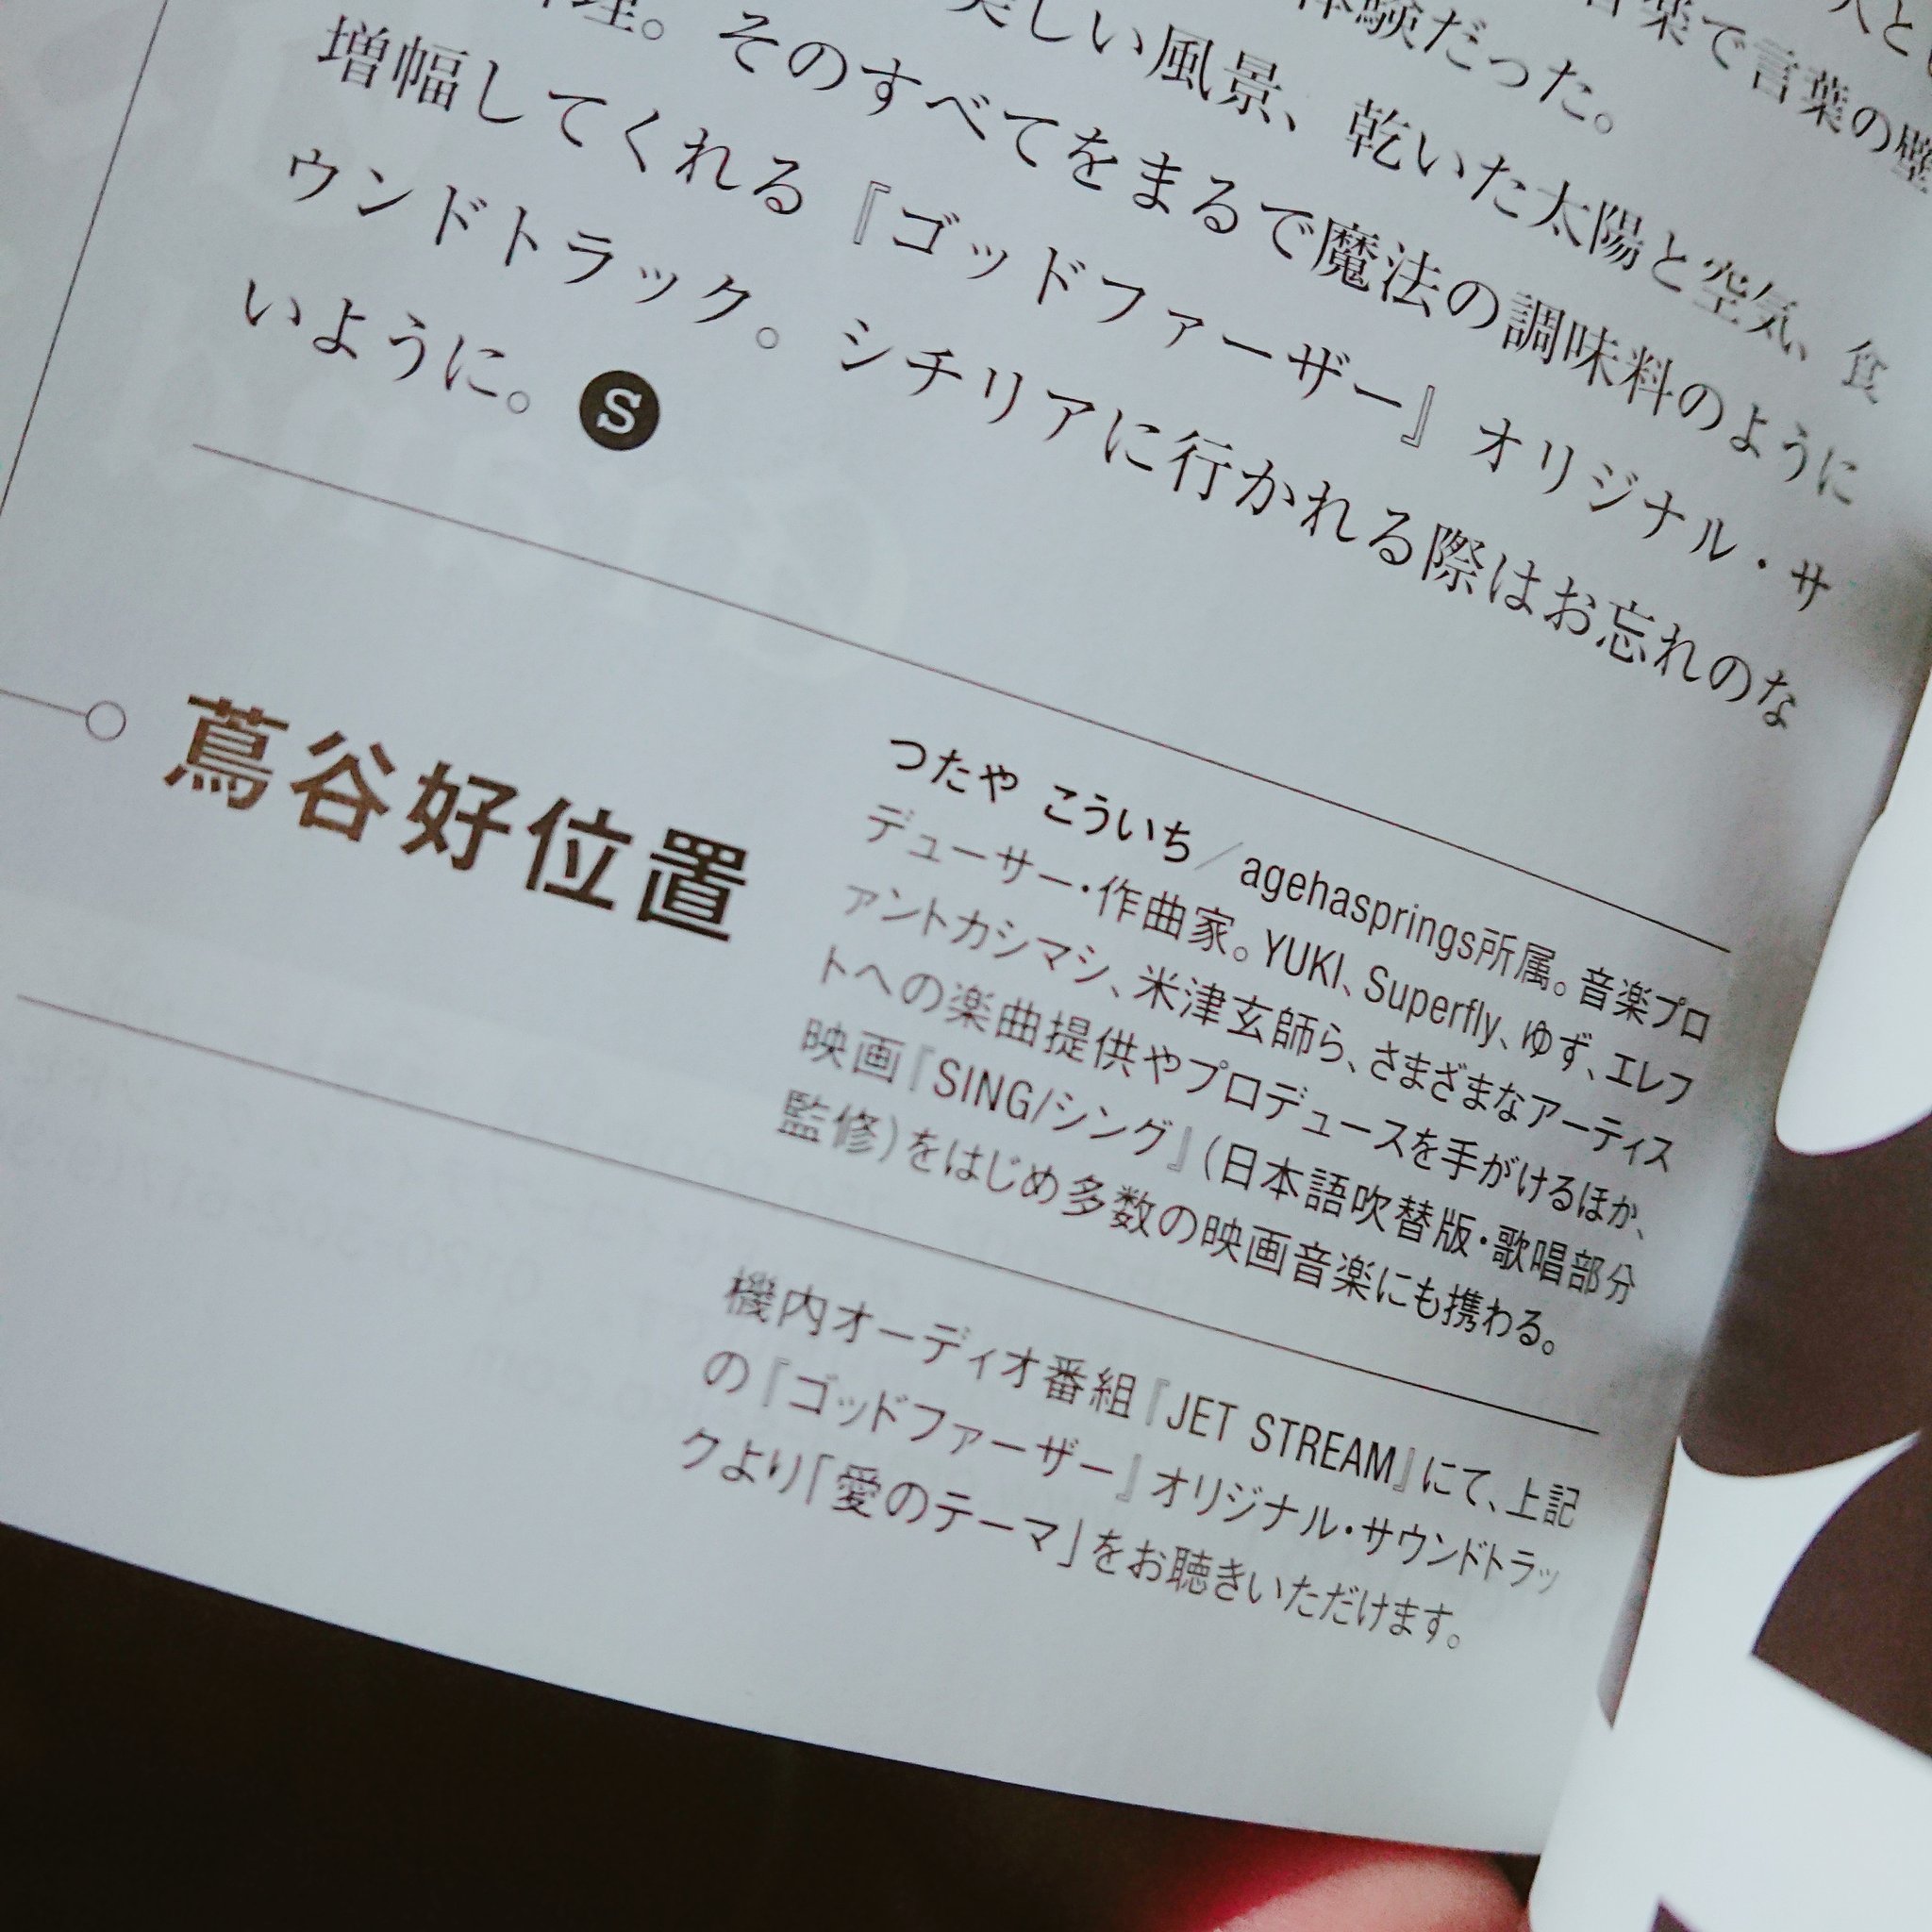 人と
言葉で言葉の壁
体験だった。
美しい風景、乾いた太陽と空気、食
理。そのすべてをまるで魔法の調味料のように
増幅してくれる『ゴッドファーザー』オリジナル・サ
ウンドトラック。シチリアに行かれる際はお忘れのな
いように。S
蔦谷好位置
つたや こういち／agehasprings所属。音楽プロ
デューサー・作曲家。YUKI、Superfly、ゆず、エレフ
ァントカシマシ、米津玄師ら、さまざまなアーティス
トへの楽曲提供やプロデュースを手がけるほか、
映画『SING/シング』（日本語吹替版・歌唱部分
監修）をはじめ多数の映画音楽にも携わる。
機内オーディオ番組『JET STREAM』にて、上記
の『ゴッドファーザー』オリジナル・サウンドトラッ
クより「愛のテーマ」をお聴きいただけます。